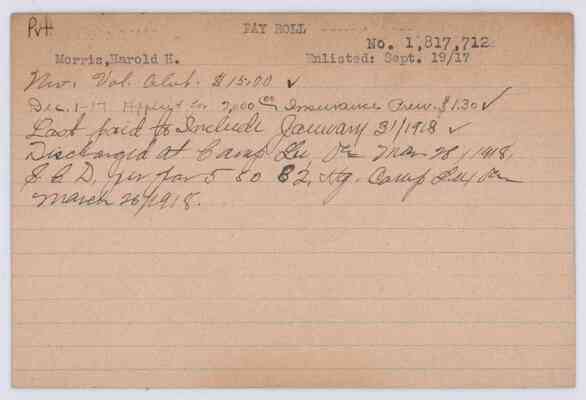 Pvt
PAY ROLL
No. 1,817,712
Morris,Harold H.
Enlisted: Sept. 19/17
Vol. Alot. $15.00 ✓
Dec. 1-17 for Insurance Prem. $1.30 ✓
Last paid to Include January 31/1918 ✓
Discharged at Camp Lee, Va Mar 28/1918,
S.C.D. per par 5 SO 82, Hq. Camp Lee, Va
March 26/1918.